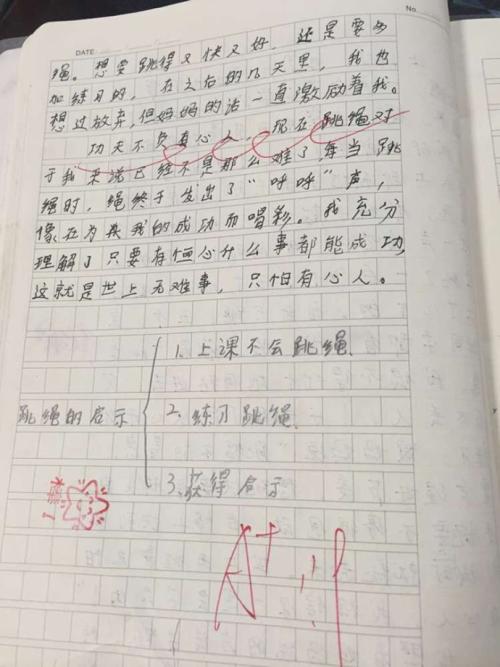 No.
DATE
绳。想要跳得又快又好，还是要多
加练习的，在之后的几天里，我也
想过放弃，但妈妈的话一直激励着我。
功夫不负有心人，现在跳绳对
于我来说已经不是那么难了，每当跳
绳时，绳终于发出了“呼呼”声，
像在为我的成功而喝彩。我充分
理解了只要有恒心什么事都能成功，
这就是世上无难事，只怕有心人。
1.上课不会跳绳
跳绳的启示
2.练习跳绳
3.获得启示
A+